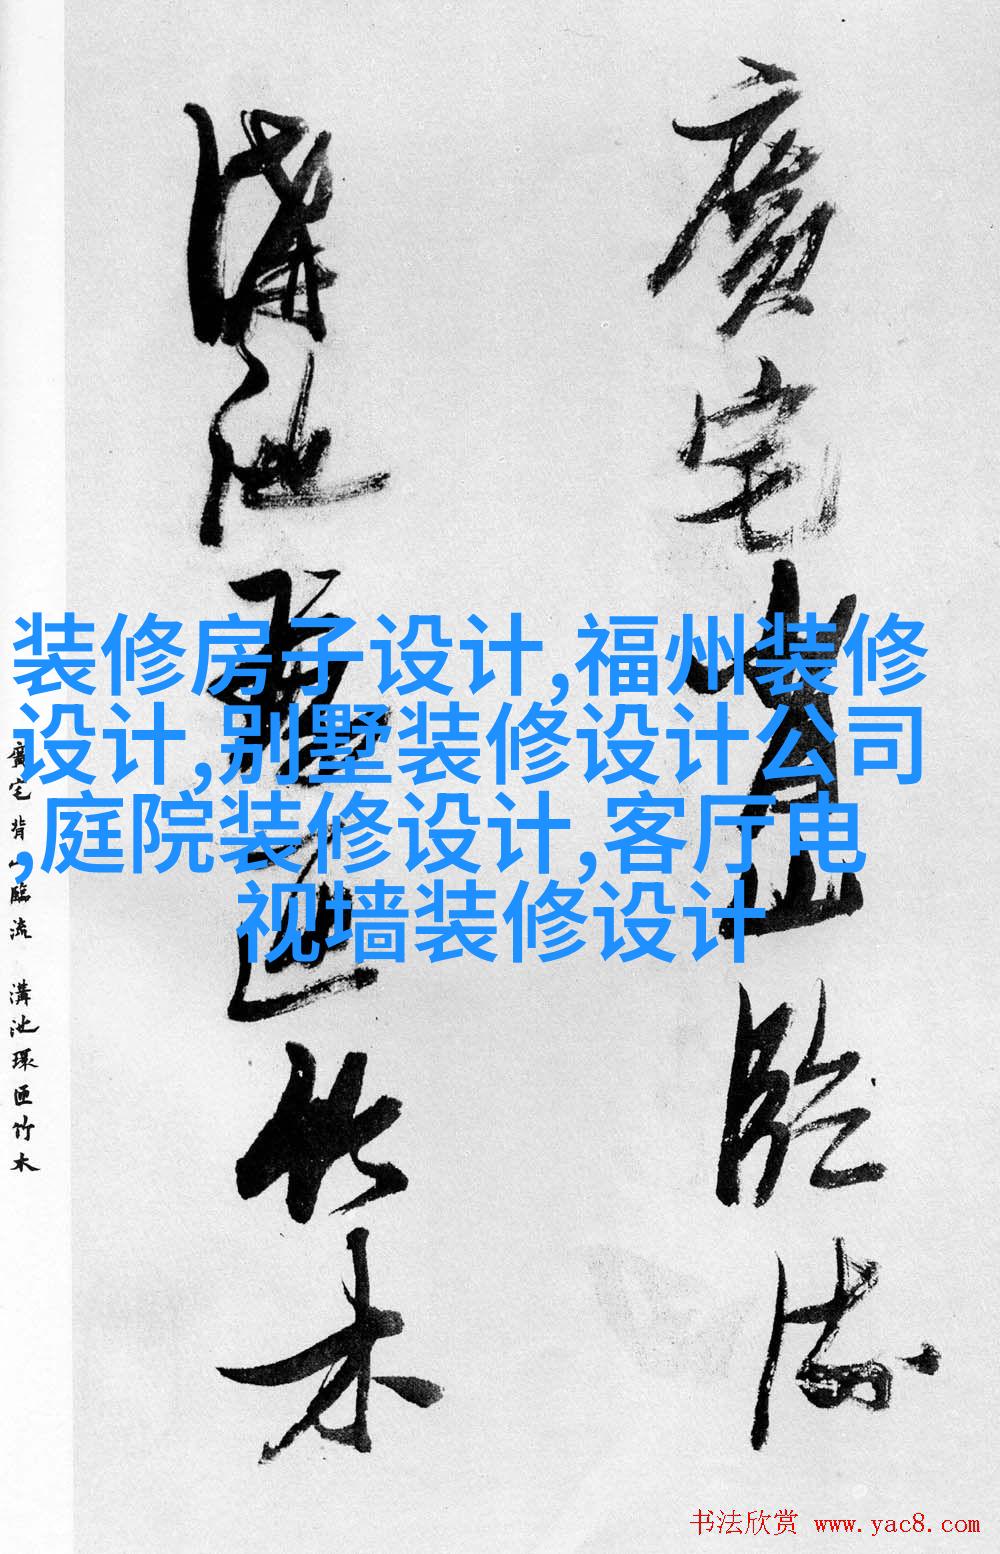 廣宅背山臨流
溝池環匝竹木
装修房子设计,福州装修
设计,别墅装修设计公司
,庭院装修设计,客厅电
视墙装修设计
廣宅背山臨流 溝池環匝竹木
书法欣赏 www.yac8.com